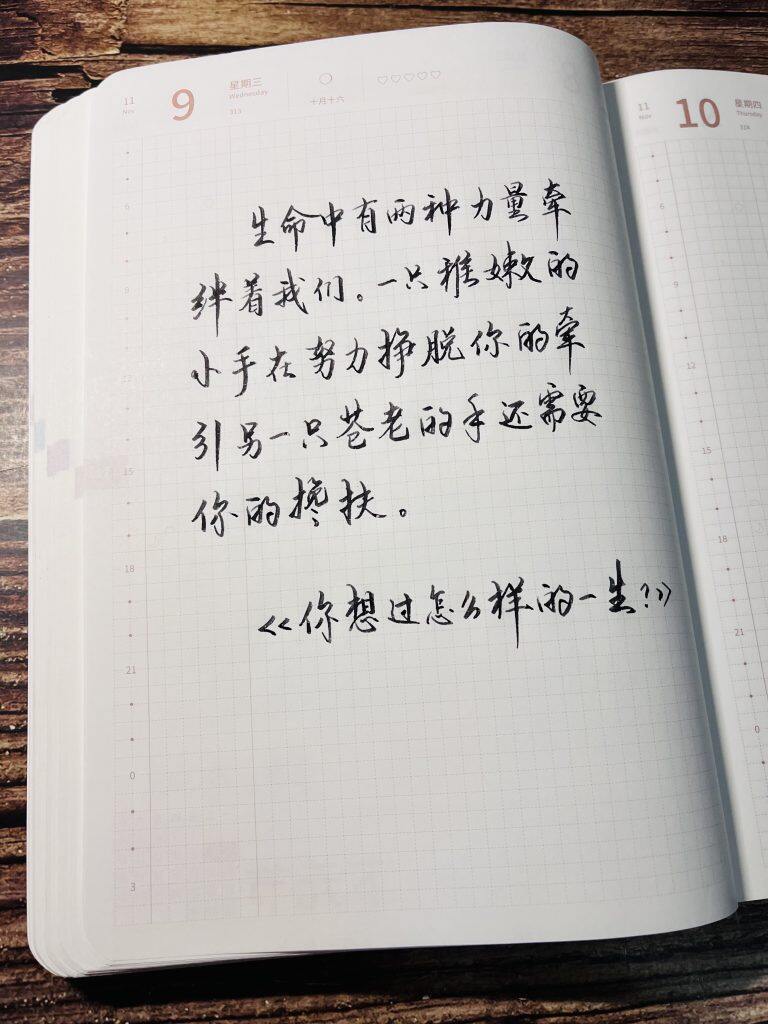 11
Nov
9
星期三
Wednesday
313
十月十六
生命中有两种力量牵
绊着我们。一只稚嫩的
小手在努力挣脱你的牵
引另一只苍老的手还需要
你的搀扶。
<<你想过怎么样的一生?>>
6
9
12
15
18
21
0
3
11
Nov
10
星期四
Thursday
314
6
9
12
15
18
21
0